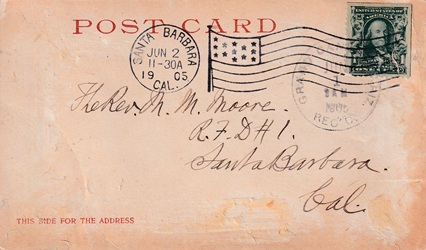 POST CARD
SANTA BARBARA
JUN 2
11-30A
1905
CAL.
GRAND CANYON, ARIZ.
1905
REC'D.
The Rev. M. M. Moore.
R. F. D # 1.
Santa Barbara.
Cal.
THIS SIDE FOR THE ADDRESS